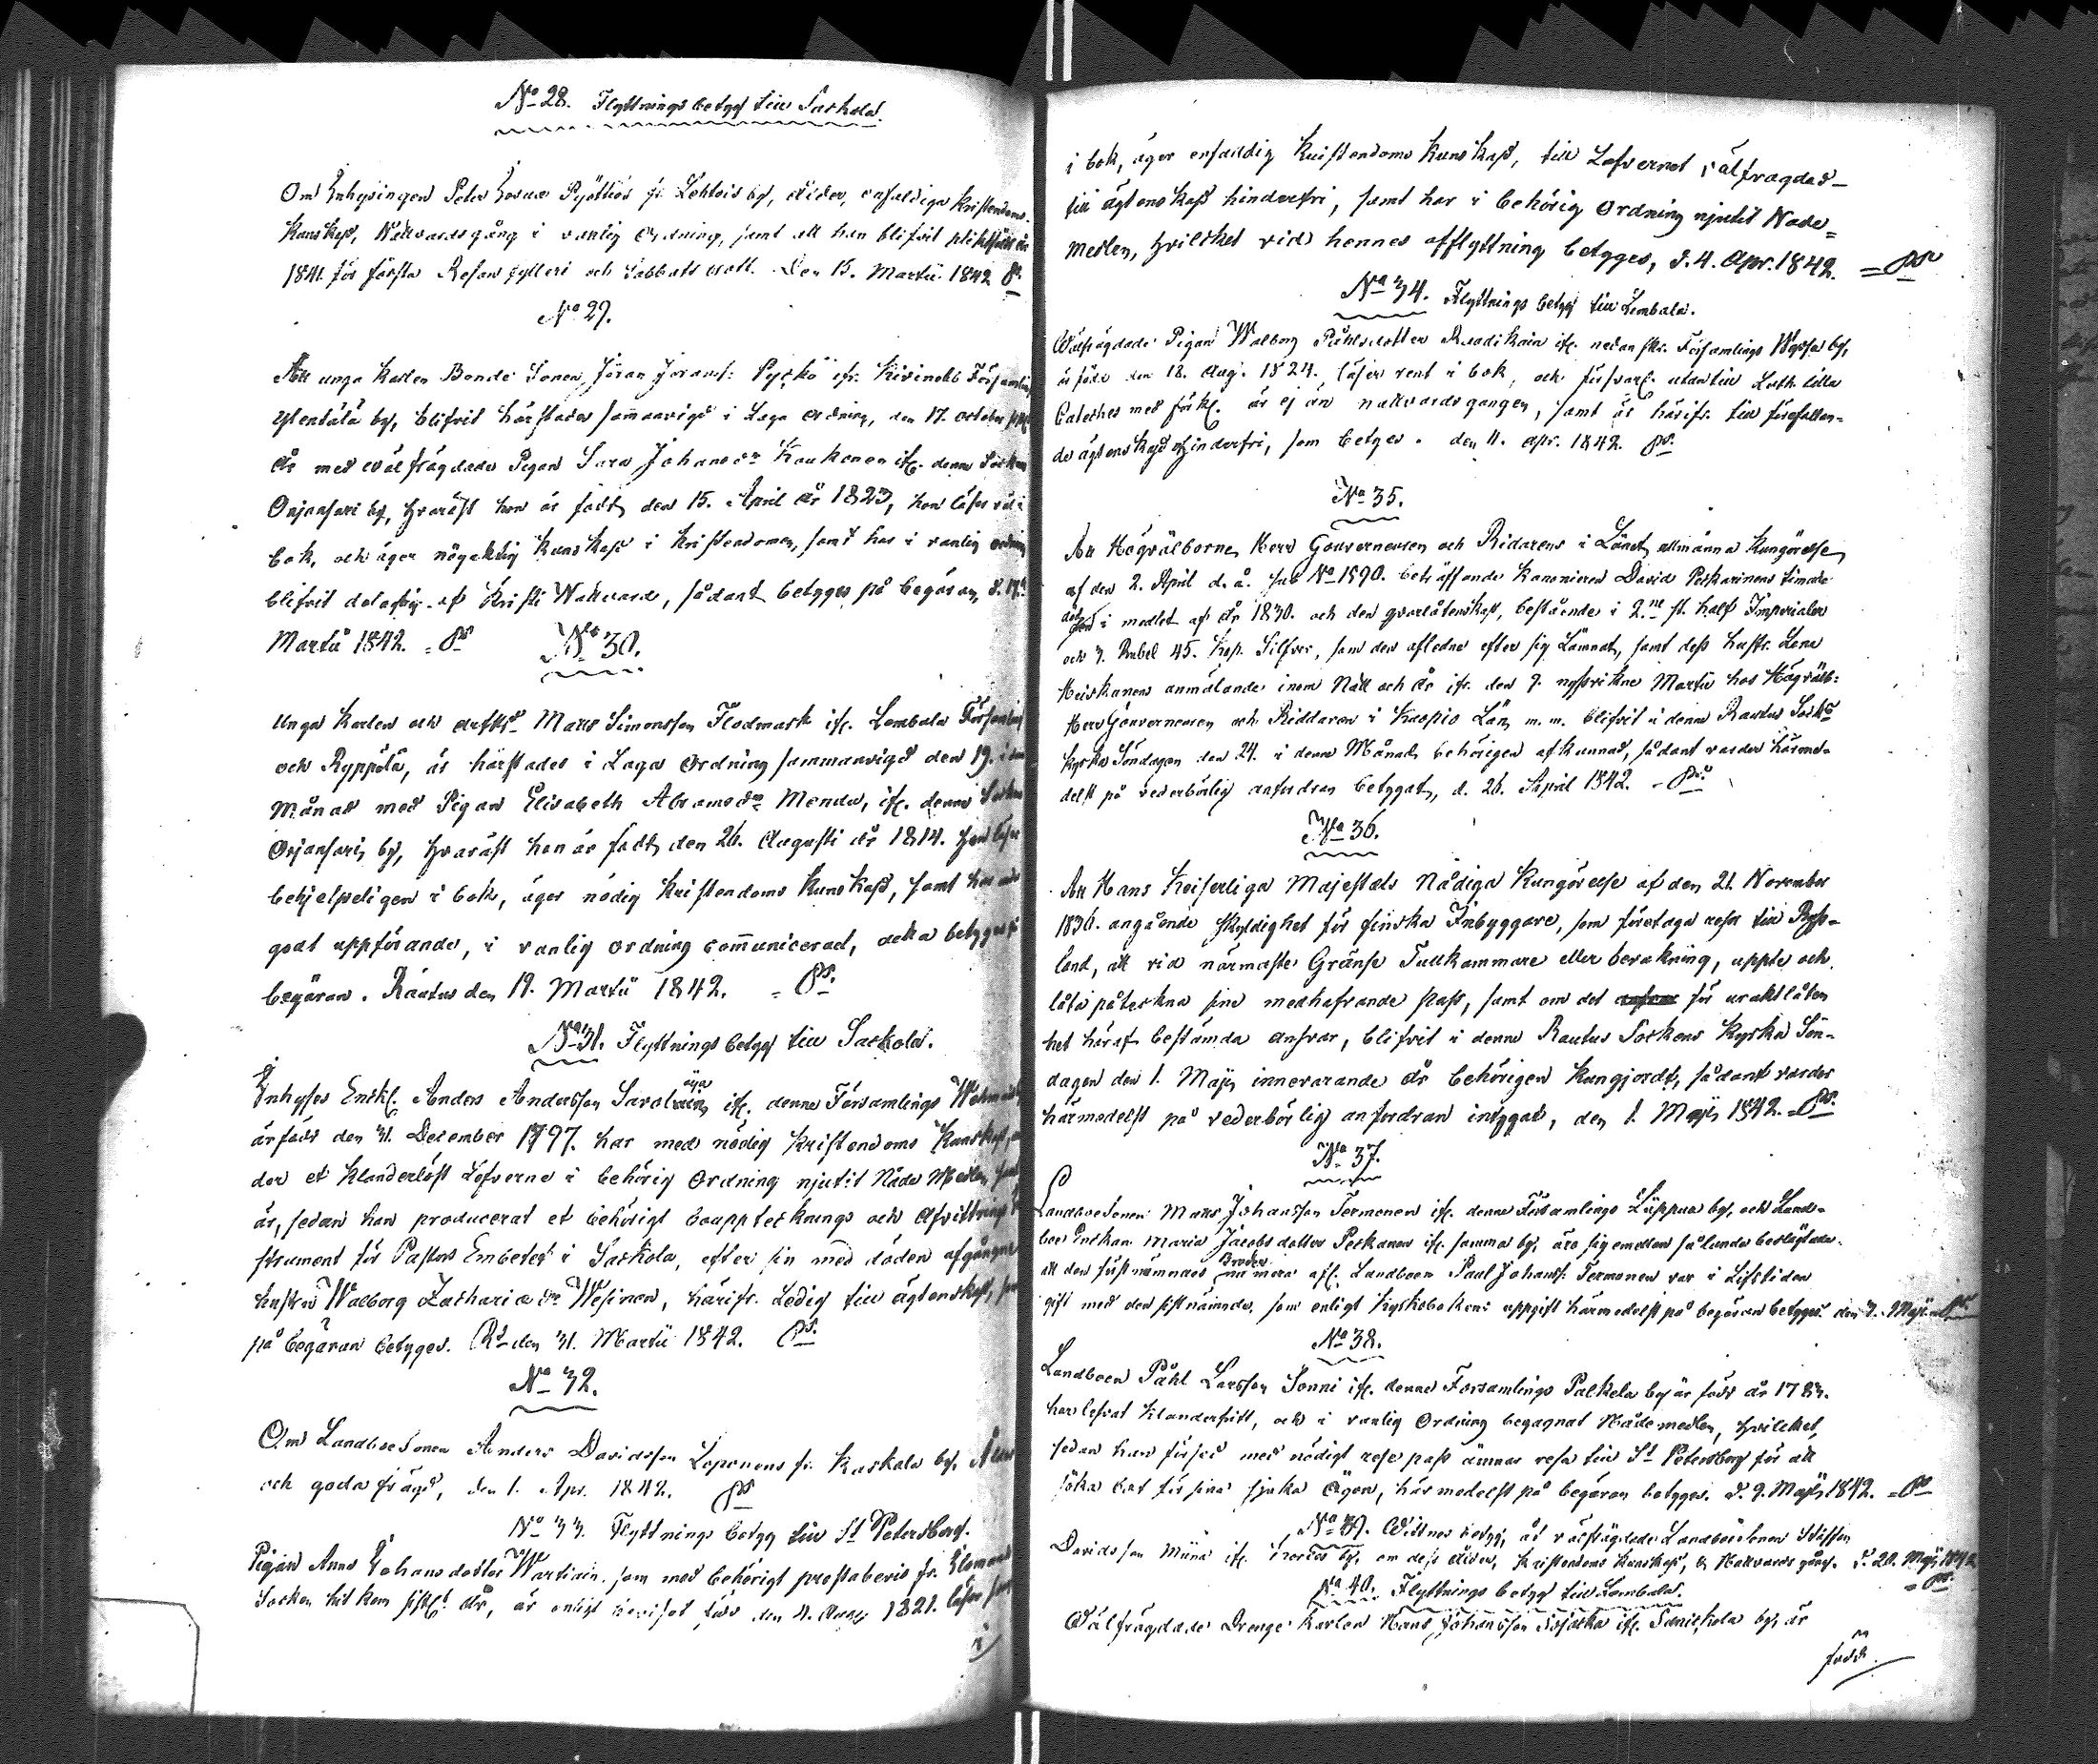 No 28. Flyttnings betyg till Sackola.
Om Inhysingen Peter Pyöttiös fr. Lehtois by, ålder, enfaldiga kristendoms
kunskap, Nattvardsgång i vanlig Ordning, samt att han blifvit pliktfäld år
1841 för första Resan fylleri och Sabbats brott. Den 15. Martii 1842 Ps.
No 29.
Att unga Karlen Bonde Sonen Jöran Joransf: Pyckö ifr. Kivinebb Församling
by, blifvit härstades sammanvigd i Laga Ordning, den 17. October
år med välfrägdade Pigan Sara Johansdr Kaukonen ifr. denne Socken
Orjansari by, hvaräst hon är född den 15. April år 1823, hon läser väl i
bok, och äger nögaktig kunskap i kristendomen, samt har i vanlig ordning
blifvit delaktig af Kristi Nattvard, sådant betyges på begäran, d. 17.
Martii 1842. Ps
No 30.
Unga Karlen och Matts Simonsson Flodmark ifr. Lembala Församling
och Ryppölä, är härstades i Laga Ordning sammanvigd den 19. i denne
Månad med Pigan Elisabeth Abramsdr Mendu, ifr. denne Socken
Orjansari by, hvaräst hon är född den 26. Augusti år 1814. Hon läser
behjelpeligen i bok, äger nödig kristendoms kunskap, samt har med
godt uppförande, i vanlig ordning communicerad, detta betyges på
begäran. Räutus den 19. Martii 1842. Ps.
No 31. Flyttnings betyg till Sackola.
Inhyses Enkl. Anders Andersson ifr. denne Församlings
är född den 31. December 1797. har med nödig kristendoms kunskap,
der et klanderlöst Lefverne i behörig Ordning njutit Nåde Medlen, samt
är, sedan han producerat et behörigt boupptecknings och Afvittrings In
strument för Pastors Embetet i Sackola, efter sin med döden afgångne
hustru Walborg Zachariædr Wesinen, härifr. Ledig till ägtenskap, som
på begäran betyges. Rs den 31. Martii 1842. Ps.
No 32.
Om Landboe Sonen Anders Davidsson Loponens fr. Kaskala by,
och goda frägd, den 1. Apr. 1842. Ps
No 33. Flyttnings betyg till St Petersburg.
Pigan Anna Johansdotter Wartiain, som med behörigt prestabevis fr.
Socken hit kom sistl. år, är enligt beviset född den 4. Aug. 1821. läser
i
i bok, äger enfaldig kristendoms kunskap, till Lefvernet välfrägdad
till ägtenskap hinderfri, samt har i behörig Ordning njutit Nåde=
Medlen, hvilcket vid hennes afflyttning betyges, d. 4. Apr. 1842. = Ps
No 34. Flyttnings betyg till Lembala.
Wälfrägdade Pigan Walborg Påhlsdotter Raadikain ifr. nedan skr. Församlings by,
är född den 18. Aug. 1824. läser rent i bok, och försvarl. utantill Luth. lilla
Cateches med förkl. är ej än nattvardsgången, samt är härifr. till förefallan-
de ägtenskap hinderfri, som betyges. den 11. Apr. 1842. Ps.
No 35.
Att Högvälborne Herr Gouverneuren och Riddarens i Länet allmänna Kungörelse
af den 2. April d. å. sub No 1590. beträffande Kanonieren David Peskarinens timade
död i medlet af år 1830. och den qvarlåtenskap, bestående i 2.ne st. half Imperialer
och 3. Rubel 45. Kop. Silfver, som den afledne efter sig Lämnat, samt dess hustr. Lena
Heiskanens anmälande inom Natt och År ifr. den 9. nystvikne Martii hos Högvälb:
Herr Gouverneuren och Riddaren i Kuopio Län m. m. blifvit i denne Rautus Sockns
kyrka Söndagen den 24. i denne Månad behörigen afkunnad, sådant varder härme-
delst på vederbörlig anfordran betygat, d. 26. April 1842. - Ps.
No 36.
Att Hans Keiserliga Majestäts Nådiga Kungörelse af den 21. November
1836. angående skyldighet för finska Inbyggare, som företaga resa till Ryss-
land, att vid närmaste Gräns Tullkammare eller bevakning, uppte och
låta påteckna sine medhafvande pass, samt om det för uraktlåten
het häraf bestämda ansvar, blifvit i denne Rautus Sockens Kyrka Sön-
dagen den 1. Maji innevarande år behörigen kungjordt, sådant varder
härmedelst på vederbörlig anfordran intygat, den 1. Maji 1842. - Ps.
No 37.
Landboesonen Matts Johansson Termonen ifr. denne Församlings Lippua by, och Land-
boe Enkan Maria Jacobs dotter Peskanen ifr. samma by, äro sigemellan sålunda beslägtade.
att den förstnämnaes Broder nu mera afl. Landboen Paul Johansf: Termonen var i Lifstiden
gift med den sistnämnda, som enligt Kyrkobokens uppgift härmedelst på begäran betyges. den 3. Maji Ps.
No 38.
Landboen Påhl Larsson Sonni ifr. denne Församlings Palkela by är född år 1783.
har lefvat klanderfritt, och i vanlig Ordning begagnat Nådemedlen, hvilcket,
sedan han försed med nödigt rese pass ämnar resa till St Petersburg för att
söka bot för sina sjuka Ögon, härmedelst på begäran betyges. d. 9. Maji 1842. - Ps
No 39. Wittnes betyg, åt välfrägdade Landboesonen Staffan
Davidsson Miinä ifr. by, om dess ålder, kristendoms kunskap, & Nattvards gång. d. 20. Maji 1842
= Ps.
No 40. Flyttnings betyg till Lembala.
Wälfrägdade Drenge Karlen Hans Johansson ifr. by, är
född.